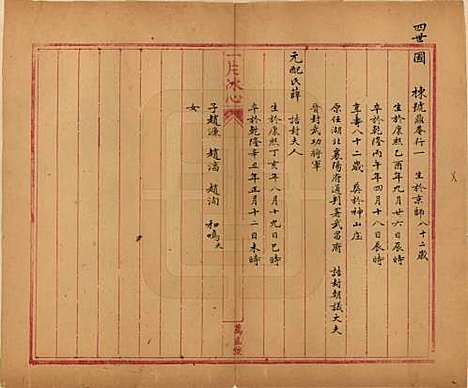 四世圖
棟琥鼎養行一　生於京師八十二歲
生於康熙乙酉年九月廿六日辰時
卒於乾隆丙午年四月十八日辰時
享壽八十二歲　葬於神山庄
原任湖北襄陽府通判署武昌府　誥封朝議大夫
晉封武功將軍
元配氏薛　誥封夫人
生於康熙丁亥年八月十九日巳時
卒於乾隆辛丑年正月十二日未時
子趙濂　趙滈　趙洵　和鳴夭
女
一片冰心